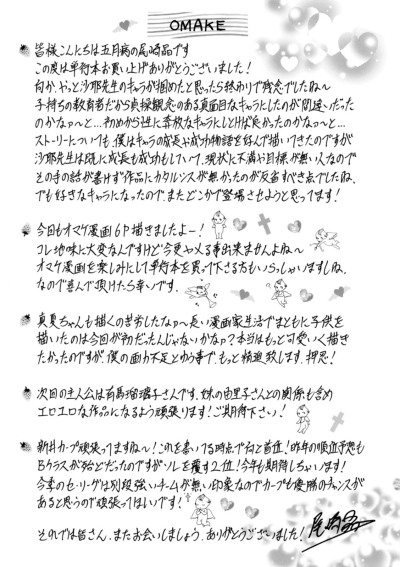 OMAKE
皆様こんにちは五月病の尾崎晶です
この度は単行本お買い上げありがとうございました!
何か、やっと沙耶先生のキャラが掴めたと思ったら終わりで残念でしたね〜
子持ちの教育者だから貞操観念のある真面目なキャラにしたのが間違いだった
のかなァ〜と…初めから性に奔放なキャラにしとけば良かったのかなァ〜と…
ストーリーについても、僕はキャラの成長や成功物語を好んで描いてきたのですが
沙耶先生は既に成長も成功もしていて、現状に不満や目標が無い人なので
その手の話が書けず作品にカタルシスが無かったのが反省すべき点でしたね、
でも好きなキャラになったので、またどこかで登場させようと思ってます!
今回もオマケ漫画6P描きましたよー!
コレ地味に大変なんですけど今更やメる事出来ませんよね〜
オマケ漫画を楽しみにして単行本を買って下さる方もいらっしゃいますしね、
なので喜んで頂けたら幸いです、
真夏ちゃんも描くの苦労したなァ〜長い漫画家生活でまともに子供を
描いたのは今回が初だったんじゃないかなァ?本当はもっと可愛いく描き
たかったのですが、僕の画力不足とゆう事で、もっと精進致します、押忍!
次回の主人公は有馬瑠璃子さんです、妹の由里子さんとの関係も含め
エロエロな作品になるよう頑張ります!ご期待下さい!
新井カープ頑張ってますね〜!これを書いてる時点で何と首位!昨年の順位予想も
Bクラスが殆どだったのですがソレを覆す2位!今年も期待しちゃいます!
今季のセ・リーグは別段強いチームが無い印象なのでカープも優勝のチャンスが
あると思うので頑張ってほしいです!
それでは皆さん、またお会いしましょう、ありがとうございました!
尾崎晶